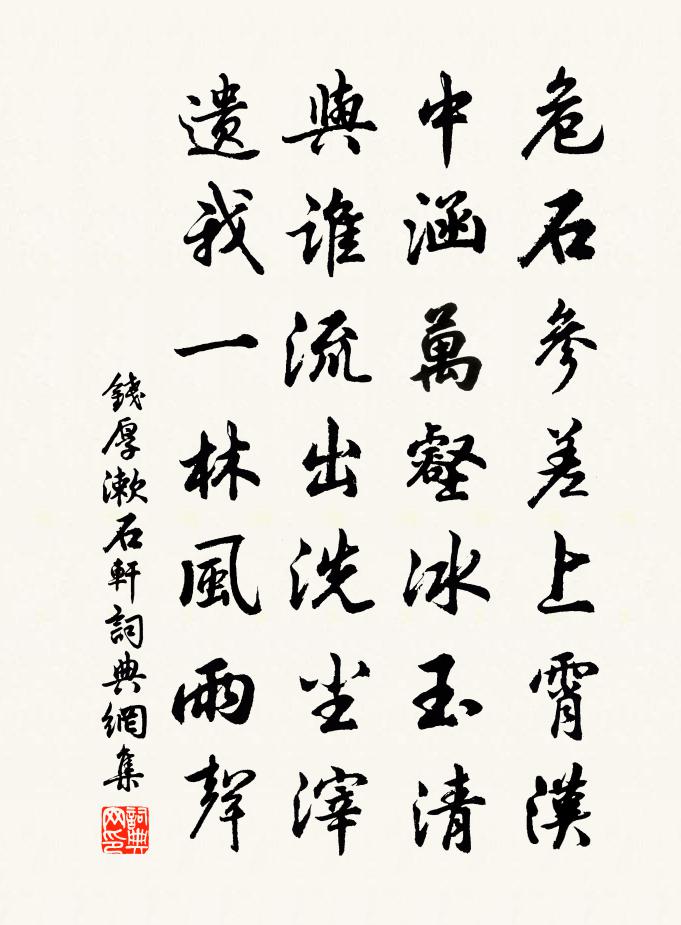 危石參差上霄漢
中涵萬壑冰玉清
與誰流出洗尘滓
遺我一林風雨聲
錢厚漱石軒詞典網集
詞典网印